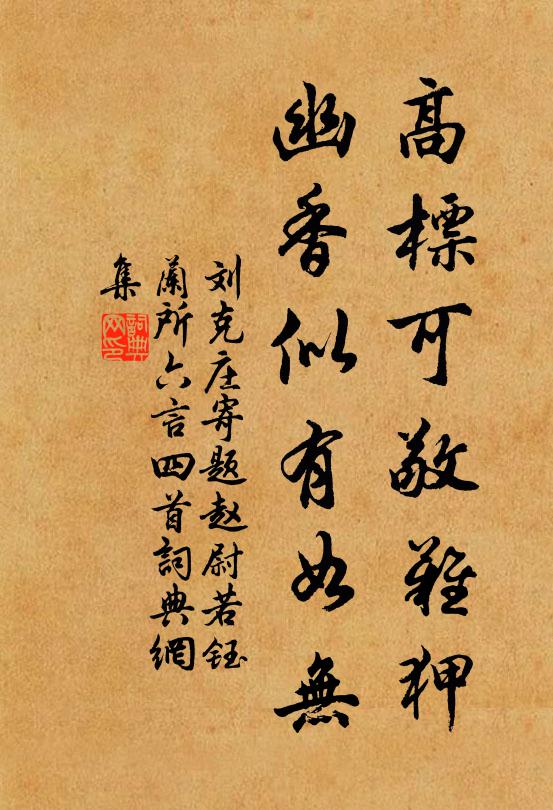 高標可敬難狎
幽香似有如無
刘克庄寄题赵尉若钰
蘭所六言四首詞典網
集
詞典
网印